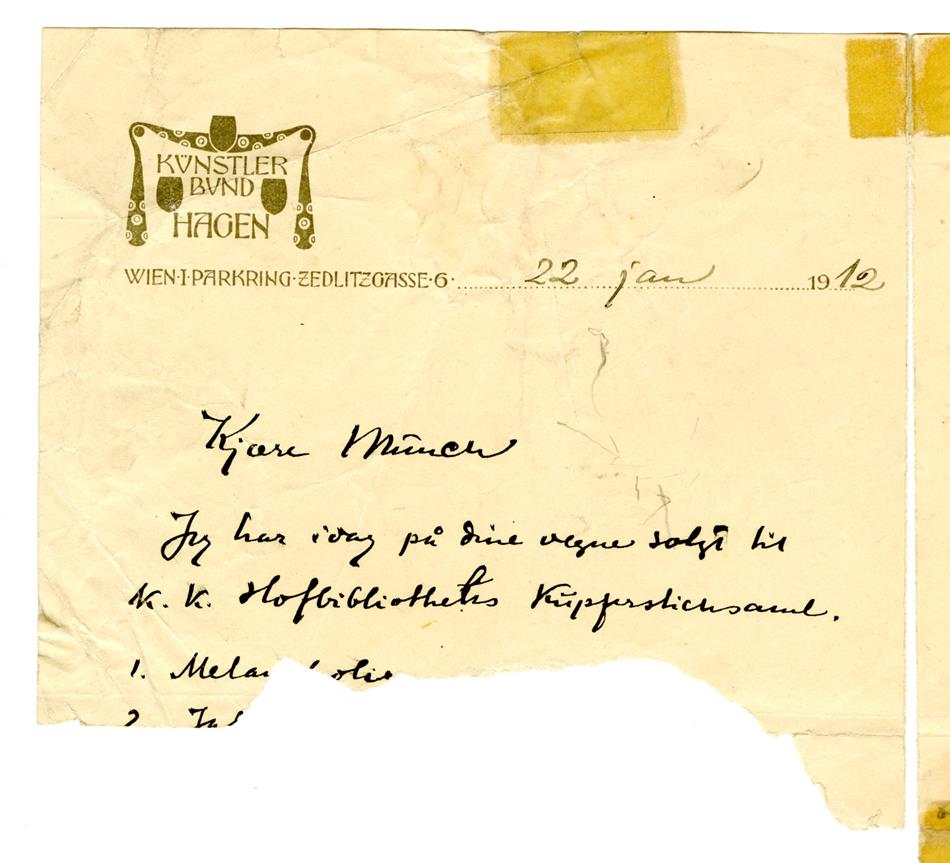 KÜNSTLER
BVND
HAGEN
WIEN·I·PARKRING·ZEDLITZGASSE·6· 22 jan 1912
Kjære Münch
Jeg har idag på dine vegne solgt til
K. K. Hofbibliotheks Küpferstichsaml.
1. Melan olie
2.